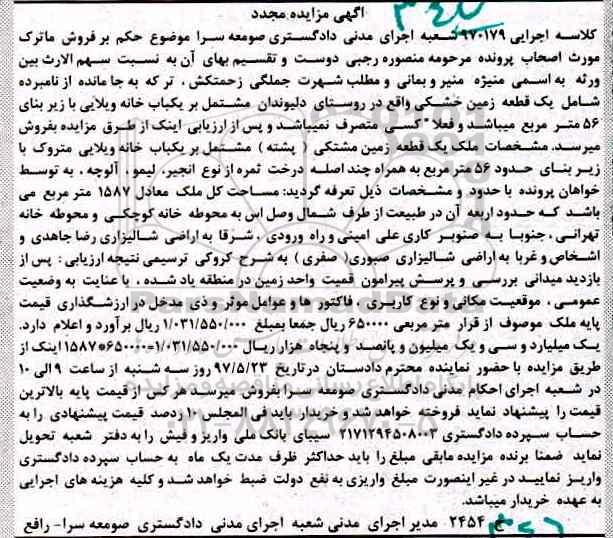 آگهی مزایده مجدد
کلاسه اجرایی ۹۷۰۱۷۹ شعبه اجرای مدنی دادگستری صومعه سرا موضوع حکم بر فروش ماترک
مورث اصحاب پرونده مرحومه منصوره رجبی دوست و تقسیم بهای آن به نسبت سهم الارث بین
ورثه به اسمی منیژه منیر و یمانی و مطلب شهرت جملگی زحمتکش ، ترکه به جا مانده از نامبرده
شامل یک قطعه زمین خشکی واقع در روستای دلیوندان مشتمل بر یکباب خانه ویلایی با زیر بنای
۵۶ متر مربع میباشد و فعلا" کسی متصرف نمیباشد و پس از ارزیابی اینک از طرق مزایده بفروش
میرسد. مشخصات ملک یک قطعه زمین مشتکی ( پشته ) مشتمل بر یکباب خانه ویلایی متروک با
زیر بنای حدود ۵۶ متر مربع به همراه چند اصله درخت ثمره از نوع انجیر، لیمو ، آلوچه ، به توسط
خواهان پرونده با حدود و مشخصات ذیل تعرفه گردید: مساحت کل ملک معادل ۱۵۸۷ متر مربع می
باشد که حدود اربعه آن در طبیعت از طرف شمال وصل اس به محوطه خانه کوچکی و محوطه خانه
تهرانی ، جنوبا به صنوبر کاری علی امینی و راه ورودی ، شرقا به اراضی شالیزاری رضا جاهدی و
اشخاص و غربا به اراضی شالیزاری صبوری( صفری ) به شرح کروکی ترسیمی نتیجه ارزیابی : پس از
بازدید میدانی بررسی و پرسش پیرامون قمیت واحد زمین در منطقه یاد شده ، با عنایت به وضعیت
عمومی ، موقعیت مکانی و نوع کاربری ، فاکتور ها و عوامل موثر و ذی مدخل در ارزشگذاری قیمت
پایه ملک موصوف از قرار متر مربعی ۶۵۰۰۰۰ ریال جمعا بمبلغ ۱/۰۳۱/۵۵۰/۰۰۰ ریال برآورد و اعلام دارد.
یک میلیارد و سی و یک میلیون و پانصد و پنجاه هزار ریال ۱/۰۳۱/۵۵۰/۰۰۰=۶۵۰۰۰۰*۱۵۸۷ اینک از
طریق مزایده با حضور نماینده محترم دادستان در تاریخ ۹۷/۵/۲۳ روز سه شنبه از ساعت ۹ الی ۱۰
در شعبه اجرای احکام مدنی دادگستری صومعه سرا بفروش میرسد هر کس از قیمت پایه بالاترین
قیمت را پیشنهاد نماید فروخته خواهد شد و خریدار باید فی المجلس ۱۰ درصد قیمت پیشنهادی را به
حساب سپرده دادگستری ۲۱۷۱۲۹۴۵۰۸۰۰۳ سیبای بانک ملی واریز و فیش را به دفتر شعبه تحویل
نماید ضمنا برنده مزایده مابقی مبلغ را باید حداکثر ظرف مدت یک ماه به حساب سپرده دادگستری
واریز نمایید در غیر اینصورت مبلغ واریزی به نفع دولت ضبط خواهد شد و کلیه هزینه های اجرایی
به عهده خریدار میباشد.
ج ۲۴۵۴ مدیر اجرای مدنی شعبه اجرای مدنی دادگستری صومعه سرا- رافع